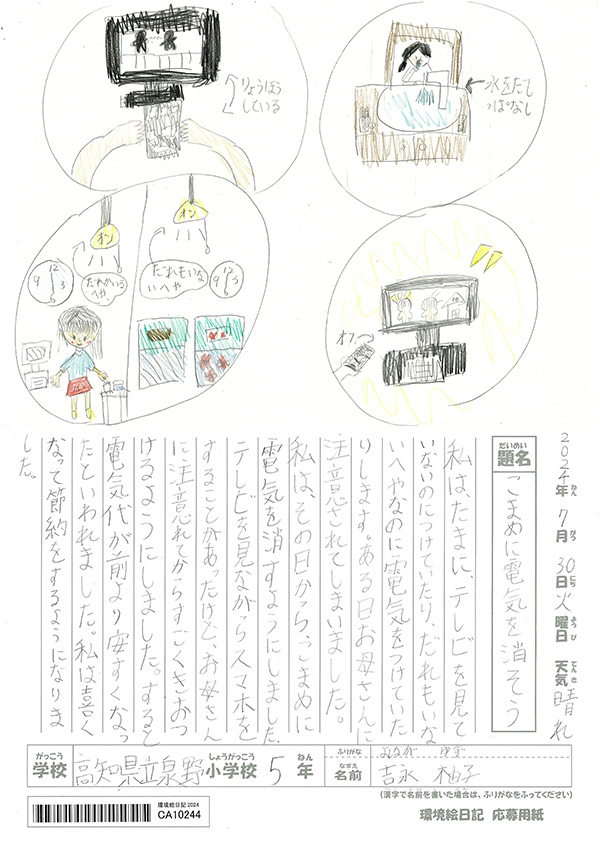 りょうほう
している
水をだし
っぱなし
オン
だれかいる
へや
オン
だれもいな
いへや
オフ
2024年 7月 30日 火曜日 天気 晴れ
ねん がつ にち ようび てんき
だいめい
題名
こまめに電気を消そう
私は、たまに、テレビを見て
いないのにつけていたり、だれもいな
いへやなのに電気をつけていた
りします。ある日お母さんに
注意されてしまいました。
私は、その日から、こまめに
電気を消すようにしました。
テレビを見ながらスマホを
することがあったけど、お母さん
に注意されてからすごくきおつ
けるようにしました。すると
電気代が前より安すくなっ
たといわれました。私は喜く
なって節約をするようになりま
した。
がっこう しょうがっこう ねん
学校 高知県立泉野小学校 5年
ふりがな よしなが ゆず
なまえ
名前 吉永 柚子
(漢字で名前を書いた場合は、ふりがなをふってください)
環境絵日記 2024
CA10244
環境絵日記 応募用紙